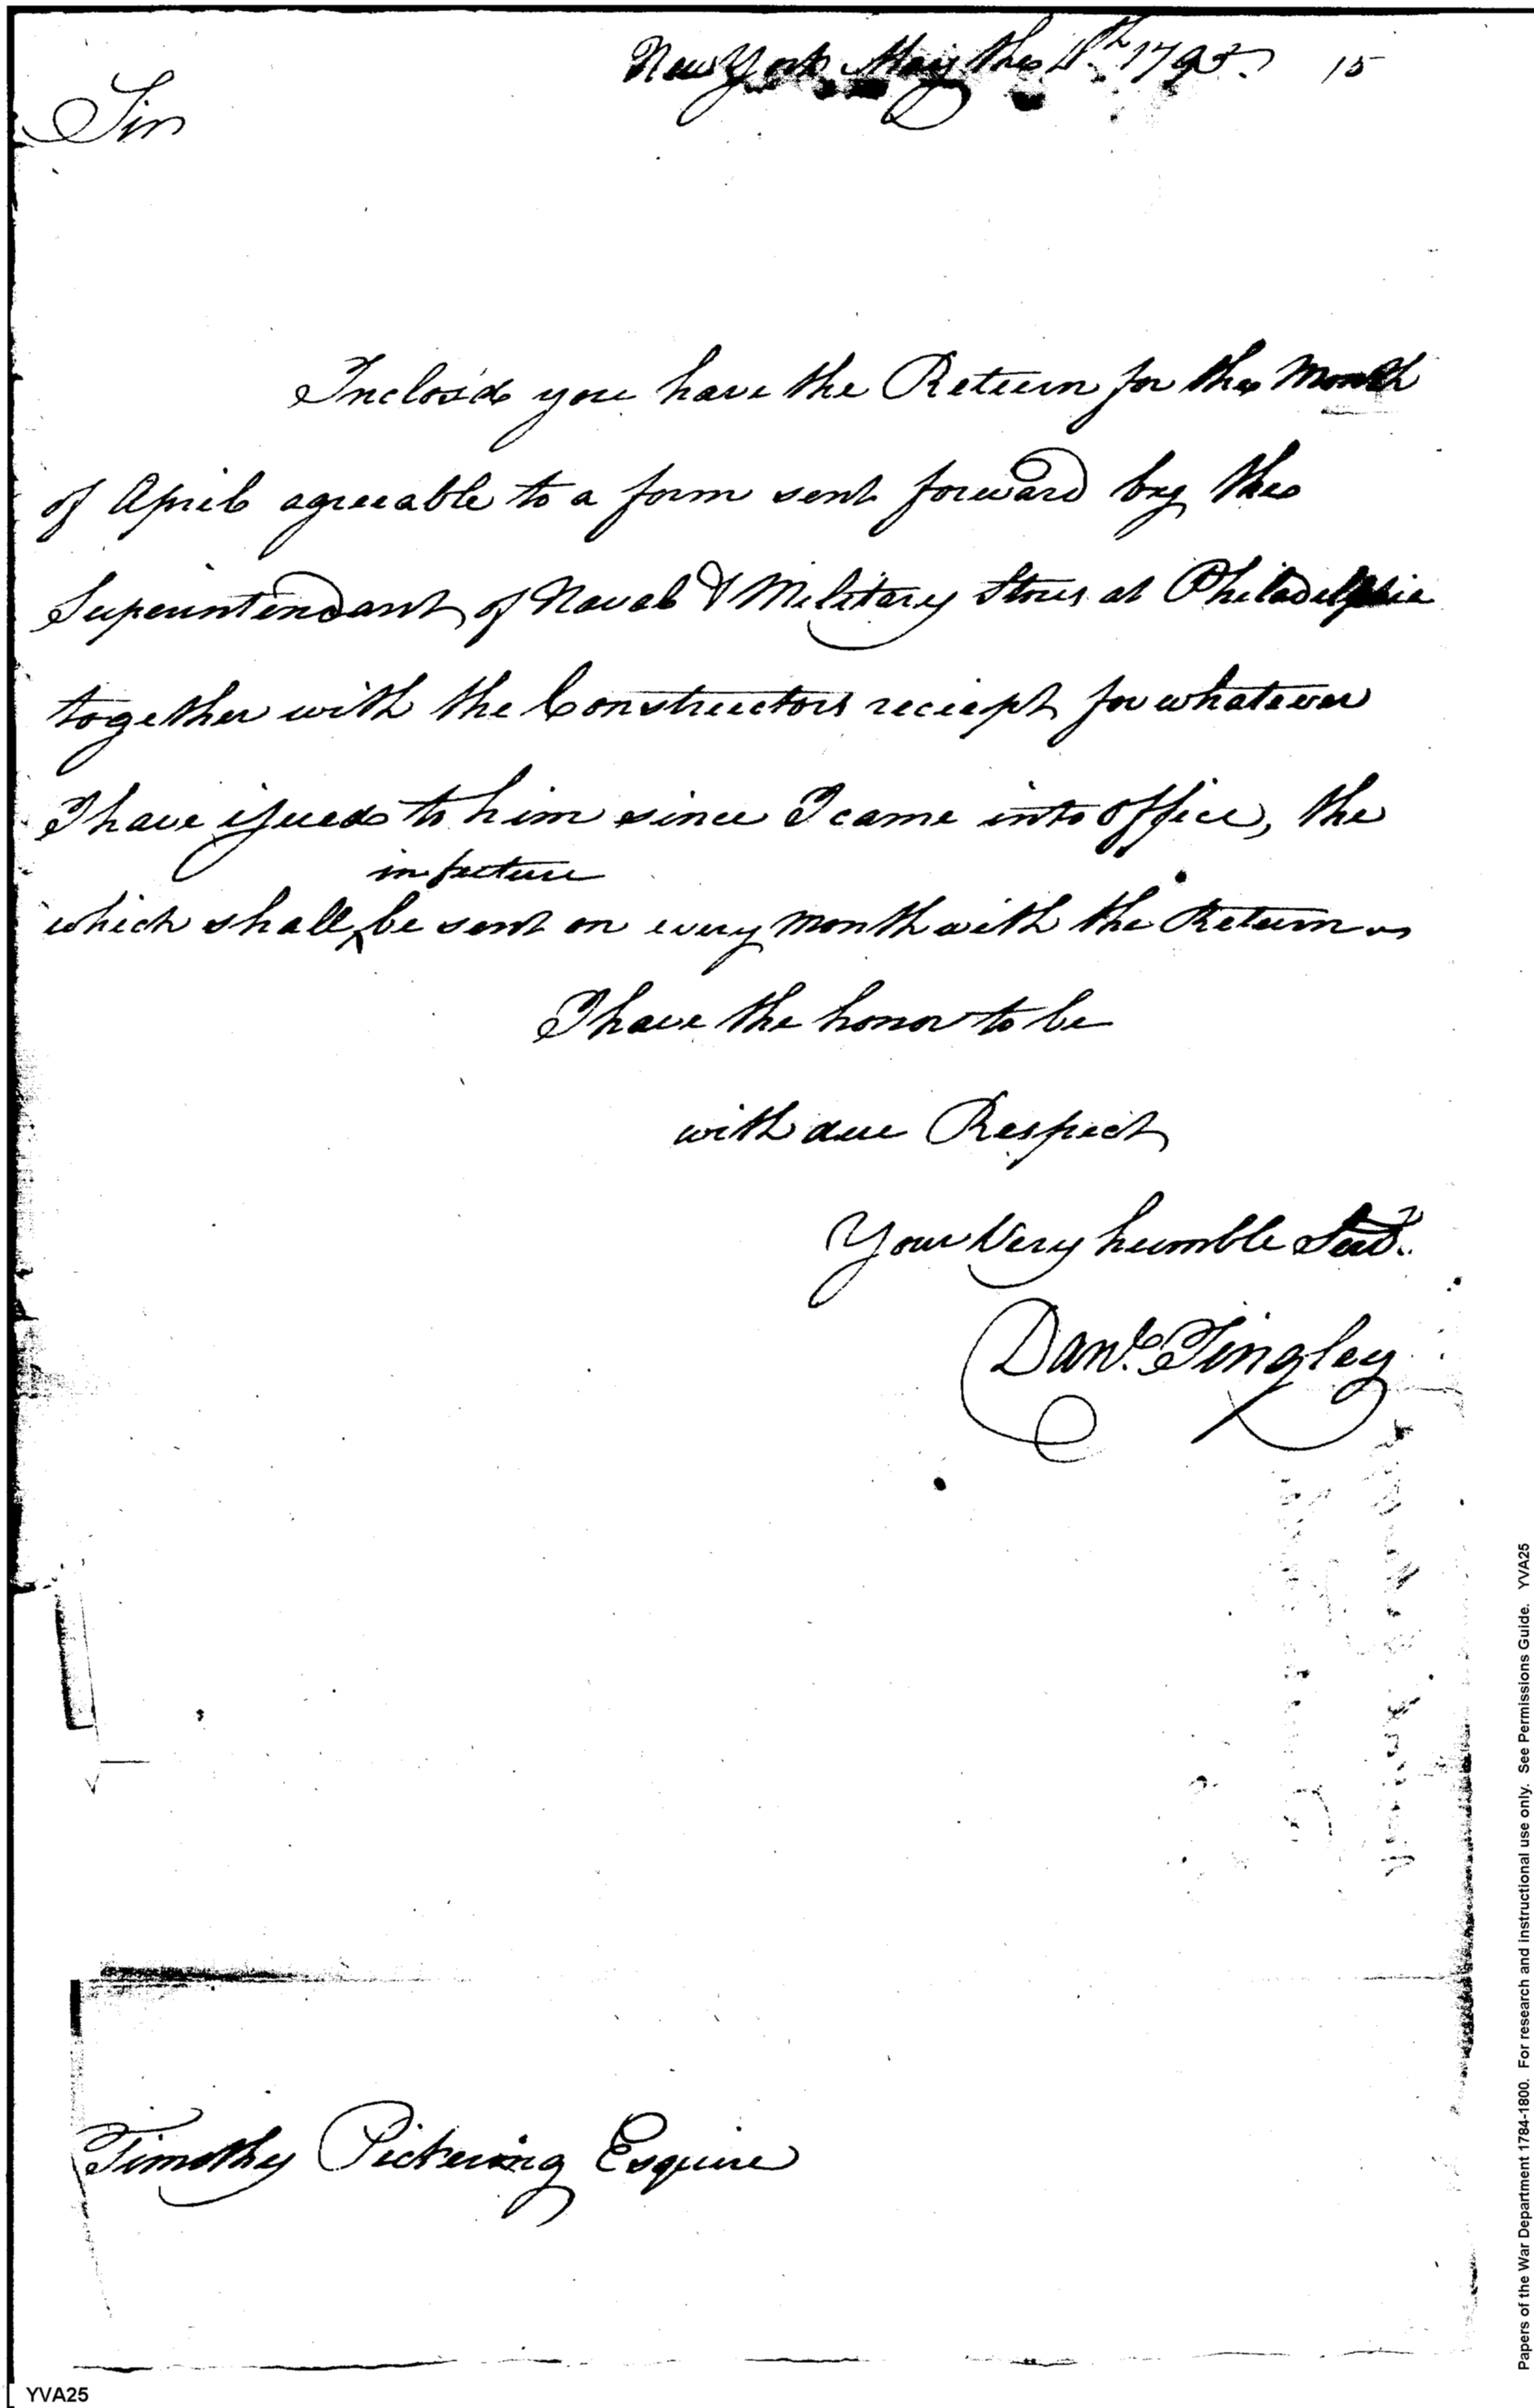 New York May the 11th 1795. 15
Sir
Inclos'd you have the Return for the Month
of April agreeable to a form sent forward by the
Superintendant of Naval & Military Stores at Philadelphia
together with the Constructors reciept for whatever
I have issued to him since I came into office, the
in future
which shall ^ be sent on every month with the Return
I have the honor to be
with due Respect
Your Very humble Servt.
Danl. Tingley
Timothy Pickering Esquire
YVA25
Papers of the War Department 1784-1800. For research and instructional use only. See Permissions Guide. YVA25